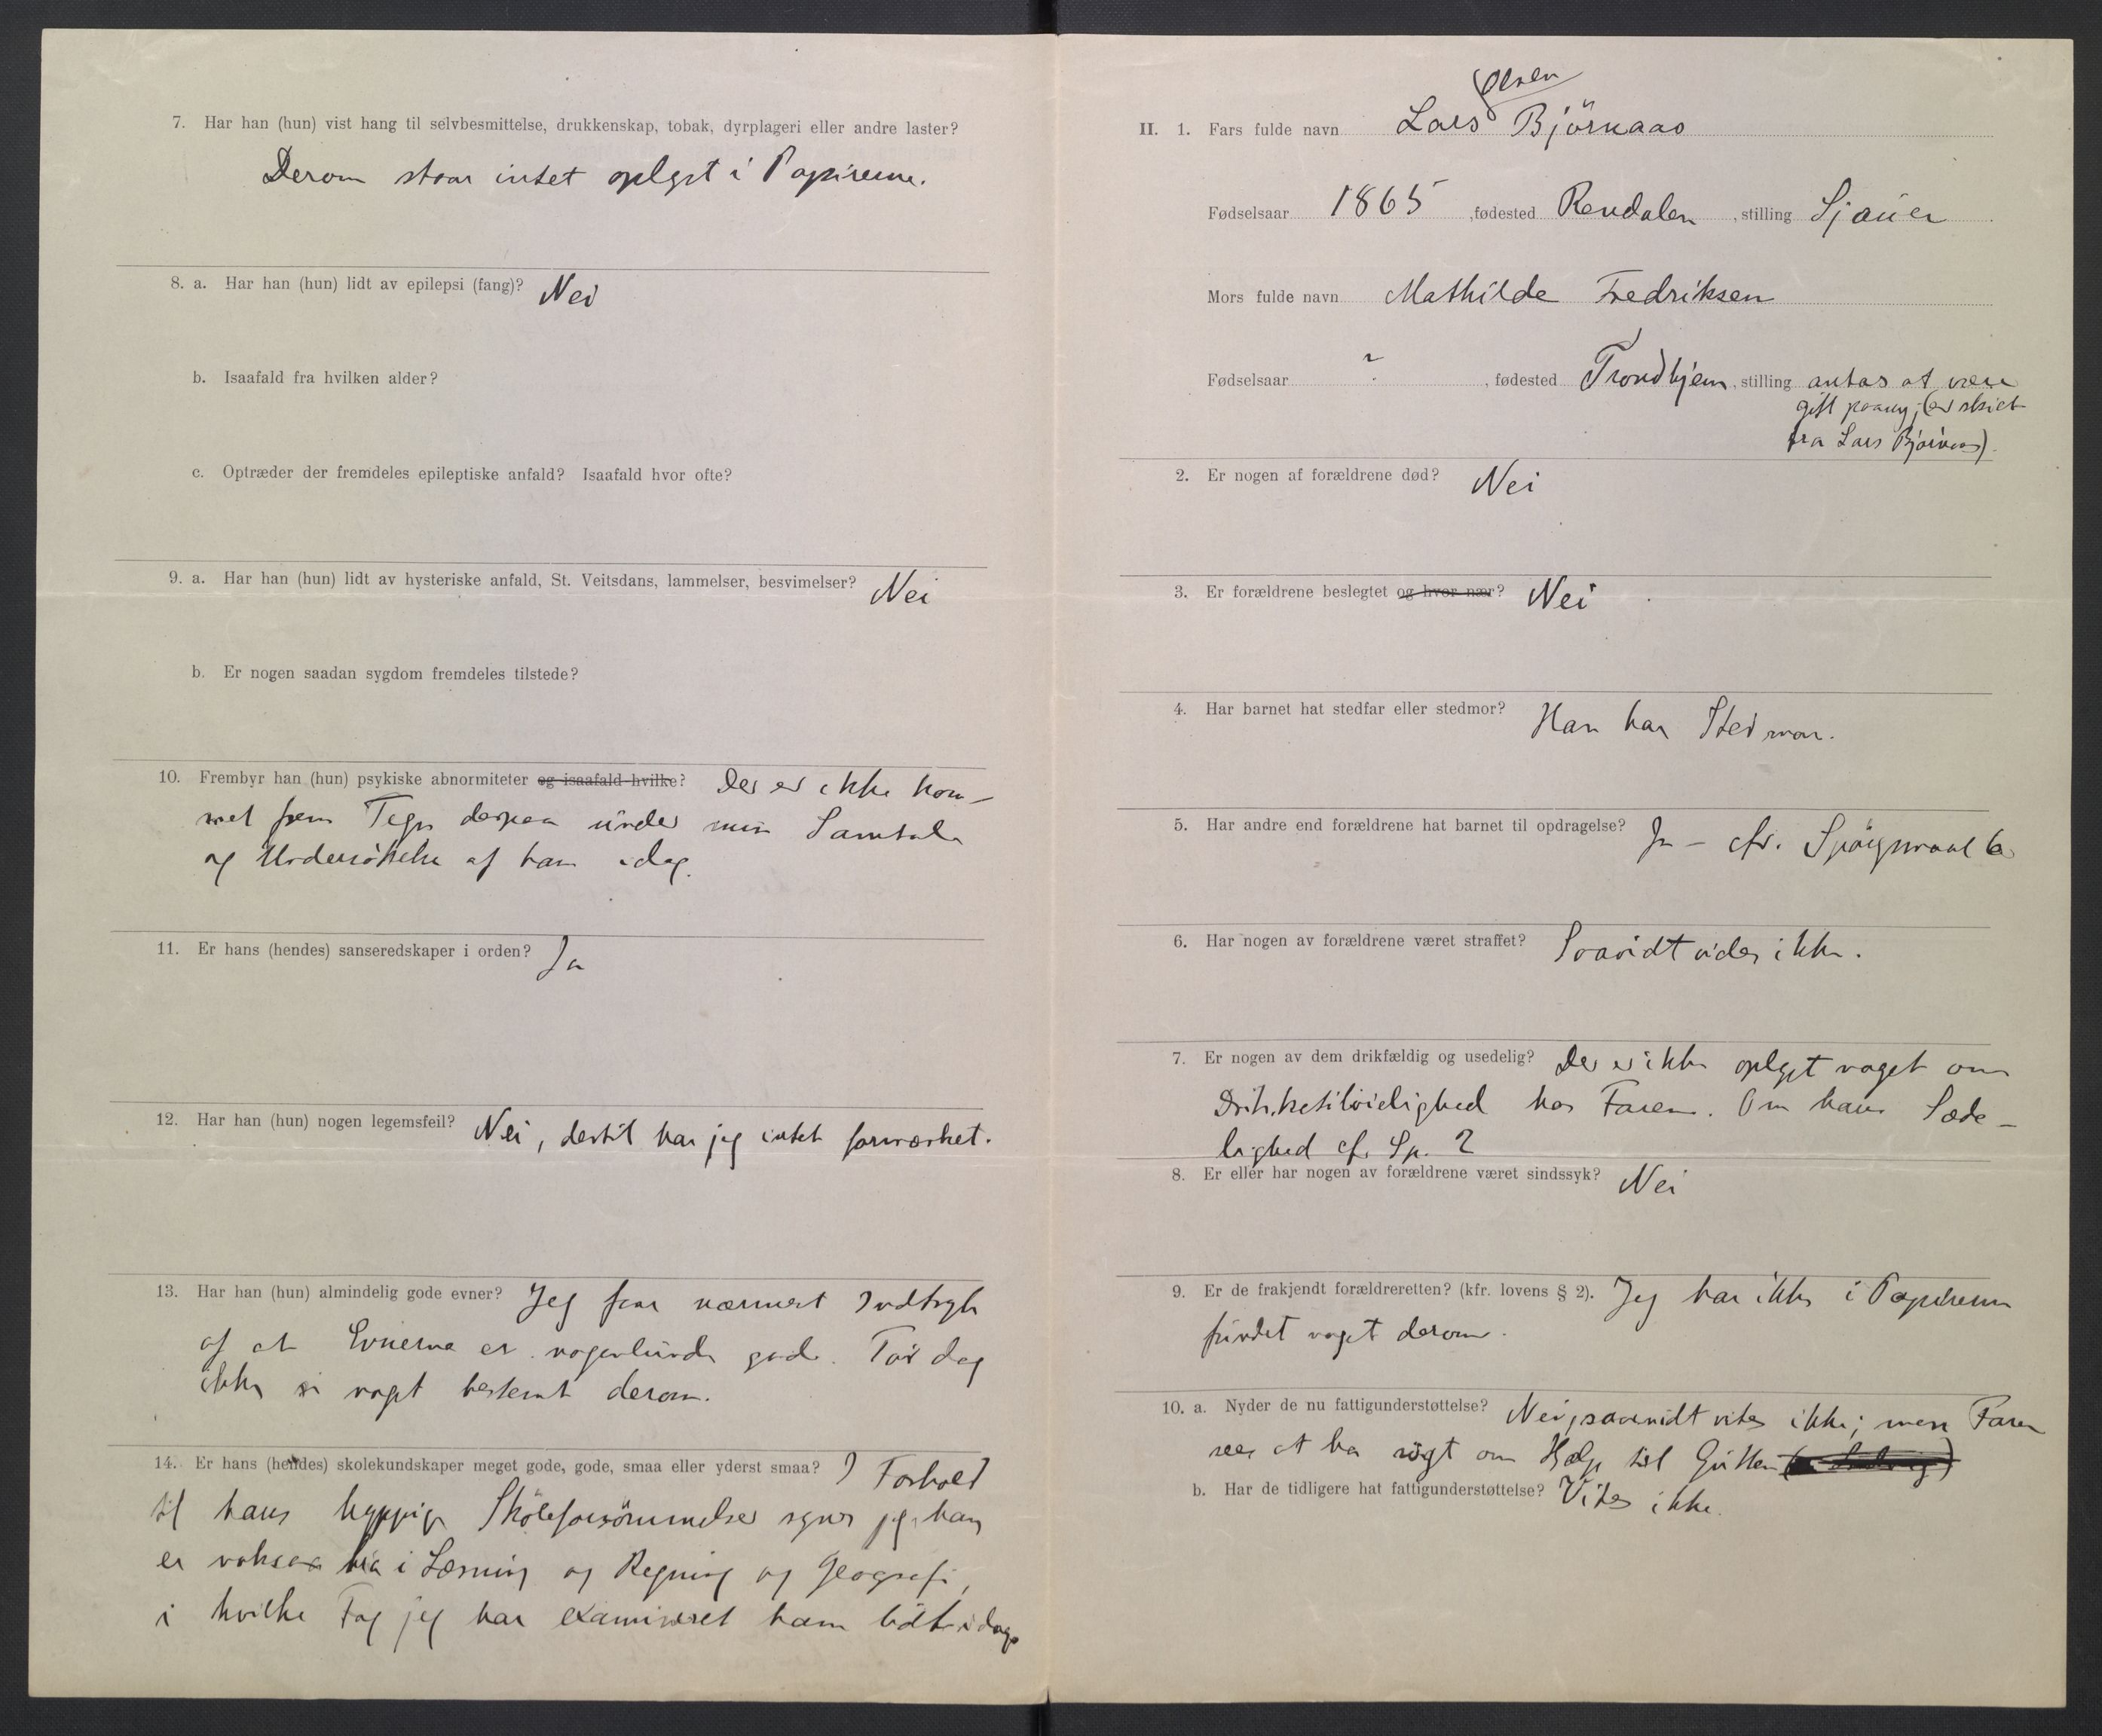 7. Har han (hun) vist hang til selvbesmittelse, drukkenskap, tobak, dyrplageri eller andre laster?
Derom staar intet oplyst i Papirerne.
8. a. Har han (hun) lidt av epilepsi (fang)? Nei
b. Isaafald fra hvilken alder?
c. Optræder der fremdeles epileptiske anfald? Isaafald hvor ofte?
9. a. Har han (hun) lidt av hysteriske anfald, St. Veitsdans, lammelser, besvimelser? Nei
b. Er nogen saadan sygdom fremdeles tilstede?
10. Frembyr han (hun) psykiske abnormiteter og isaafald hvilke? Der er ikke kom-
met frem Tegn derpaa under min Samtale
og Undersökelse af ham idag.
11. Er hans (hendes) sanseredskaper i orden? Ja
12. Har han (hun) nogen legemsfeil? Nei, dertil har jeg intet formærket.
13. Har han (hun) almindelig gode evner? Jeg faar nærmest Indtryk
af at Evnerne er nogenlunde gode. Tör dog
ikke si noget bestemt derom.
14. Er hans (hendes) skolekundskaper meget gode, gode, smaa eller yderst smaa? I Forhold
til hans hyppige Skoleforsömmelser synes jeg han
er voksen bra i Læsning og Regning og Geografi,
i hvilke Fag jeg har examineret ham lidt idag.
II. 1. Fars fulde navn Lars Olsen Björnaas
Fødselsaar 1865, fødested Rendalen, stilling Sjauer
Mors fulde navn Mathilde Fredriksen
Fødselsaar ?, fødested Trondhjem, stilling antas at være
gift paany; (er skilt
fra Lars Björnaas).
2. Er nogen af forældrene død? Nei
3. Er forældrene beslegtet og hvor nær? Nei
4. Har barnet hat stedfar eller stedmor? Han har Stedmor.
5. Har andre end forældrene hat barnet til opdragelse? Ja – cfr. Spörgsmaal 6
6. Har nogen av forældrene været straffet? Saavidt vides ikke.
7. Er nogen av dem drikfældig og usedelig? Der er ikke oplyst noget om
Drikketilböielighed hos Faren. Om hans Sæde-
lighed cf. Sp. 2
8. Er eller har nogen av forældrene været sindssyk? Nei
9. Er de frakjendt forældreretten? (kfr. lovens § 2). Jeg har ikke i Papirerne
fundet noget derom.
10. a. Nyder de nu fattigunderstøttelse? Nei, saavidt vites ikke; men Faren
sees at ha sögt om Hjelp til Gutten
b. Har de tidligere hat fattigunderstøttelse? Vites ikke.